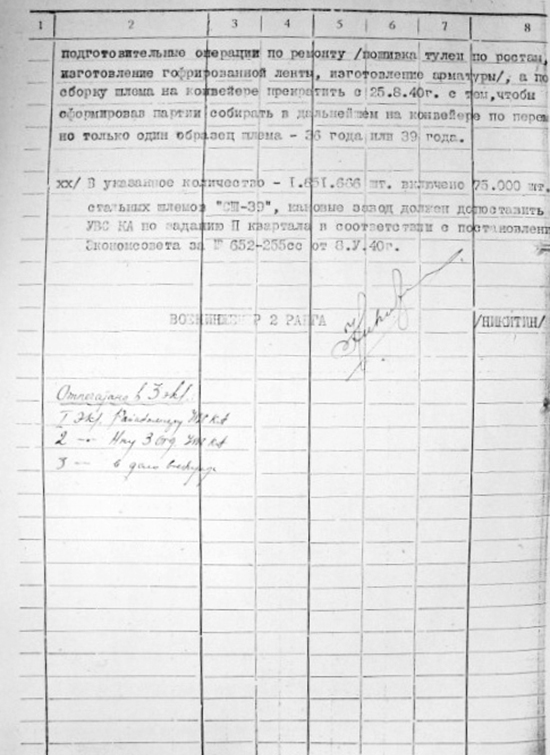 1 2 3 4 5 6 7 8
подготовительные операции по ремонту /пошивка тулеи по ростам,
изготовление гофрированной ленты, изготовление арматуры/, а по
сборку шлема на конвейере прекратить с 25.8.40г. с тем, чтобы
сформировав партии собирать в дальнейшем на конвейере по
но только один образец шлема - 36 года или 39 года.
хх/ В указанное количество - I.651.666 шт. включено 75.000 шт.
стальных шлемов "СШ-39", каковые завод должен допоставить
УВС КА по заданию П квартала в соответствии с постановлени
Экономсовета за № 652-255сс от 8.У.40г.
ВОЕНИНЖЕНЕР 2 РАНГА /НИКИТИН/
Отпечатано в 3 экз.
I экз. КА
2 -"- Нач 3 Отд. КА
3 -"- в дело